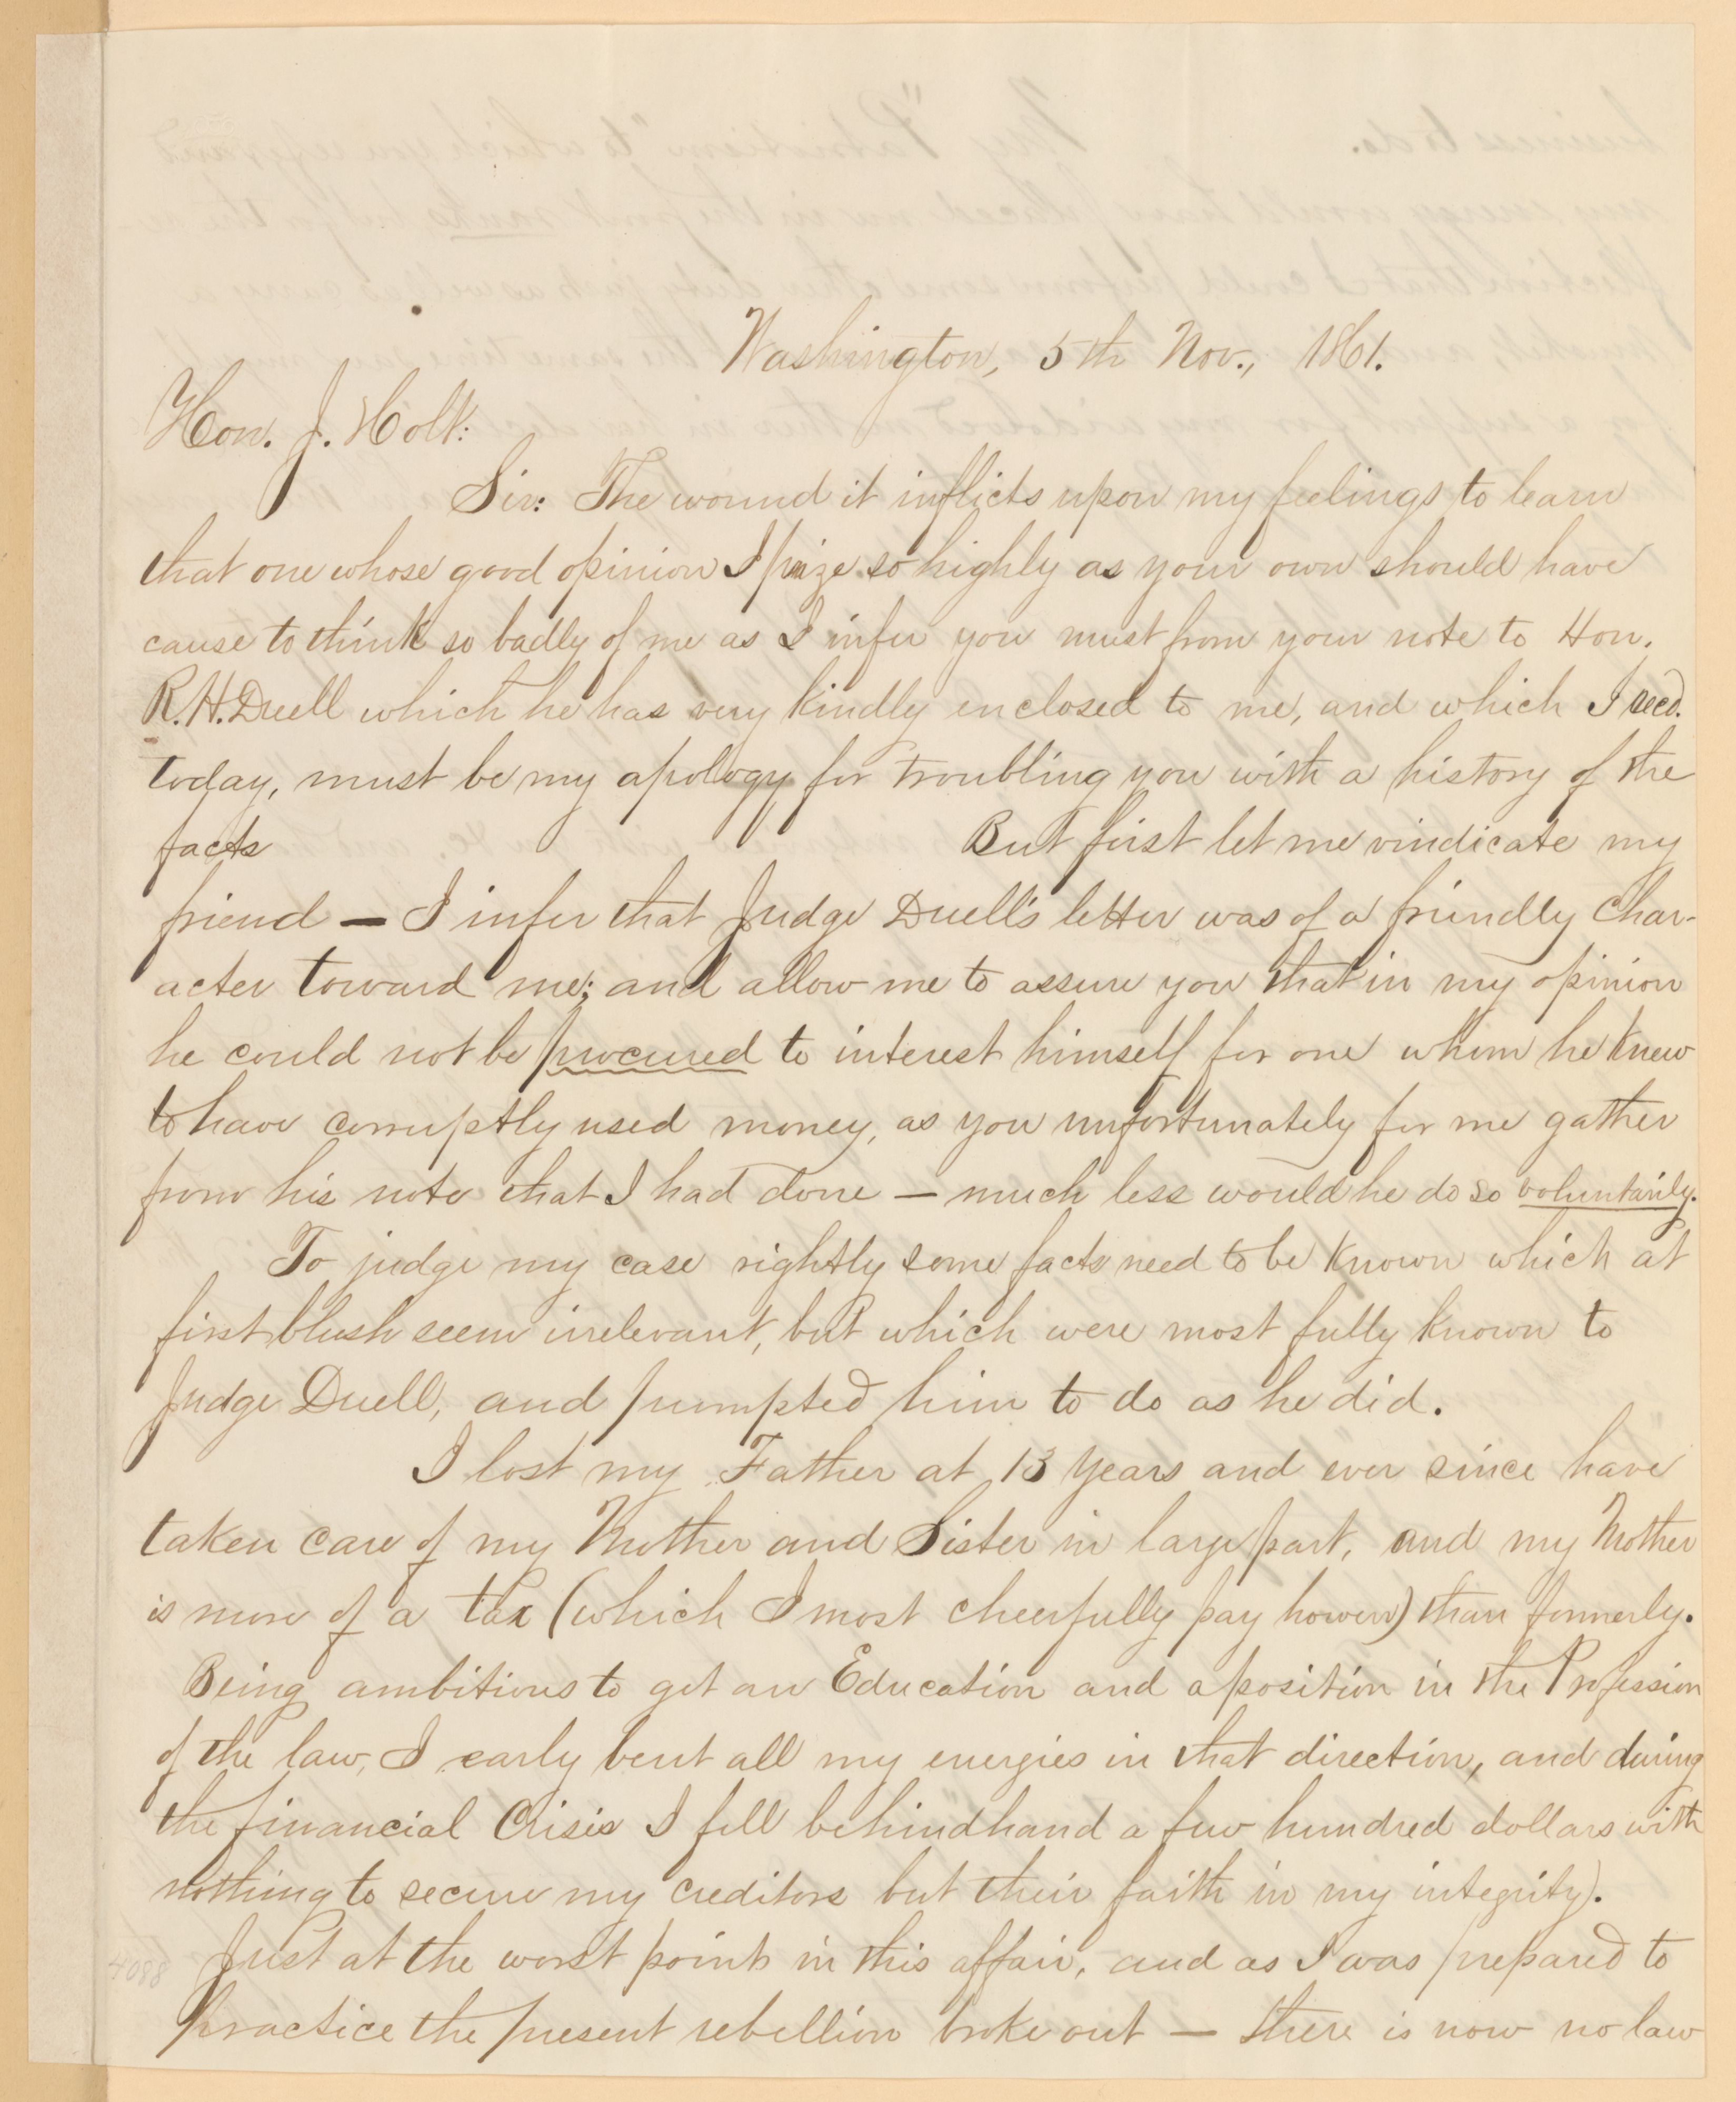 Washington, 5th Nov., 1861.
Hon. J. Holt:
Sir: The wound it inflicts upon my feelings to learn
that one whose good opinion I prize so highly as your own should have
cause to think so badly of me as I infer you must from your note to Hon.
R.H. Duell which he has very kindly enclosed to me, and which I recd.
today, must be my apology for troubling you with a history of the
facts But first let me vindicate my
friend — I infer that Judge Duell's letter was of a friendly Char-
acter toward me; and allow me to assure you that in my opinion
he could not be procured to interest himself for one whom he knew
to have corruptly used money, as you unfortunately for me gather
from his note that I had done — much less would he do so voluntarily.
To judge my case rightly some facts need to be known which at
first blush seem irrelevant, but which were most fully known to
Judge Duell, and prompted him to do as he did.
I lost my Father at 13 years and ever since have
taken care of my Mother and Sister in large part, and my Mother
is more of a tax (which I most cheerfully pay however) than formerly.
Being ambitious to get an Education and a position in the Profession
of the law, I early bent all my energies in that direction, and during
the financial Crisis I fell behindhand a few hundred dollars with
nothing to secure my creditors but their faith in my integrity).
Just at the worst point in this affair, and as I was prepared to
practice the present rebellion broke out — there is now no law
4088